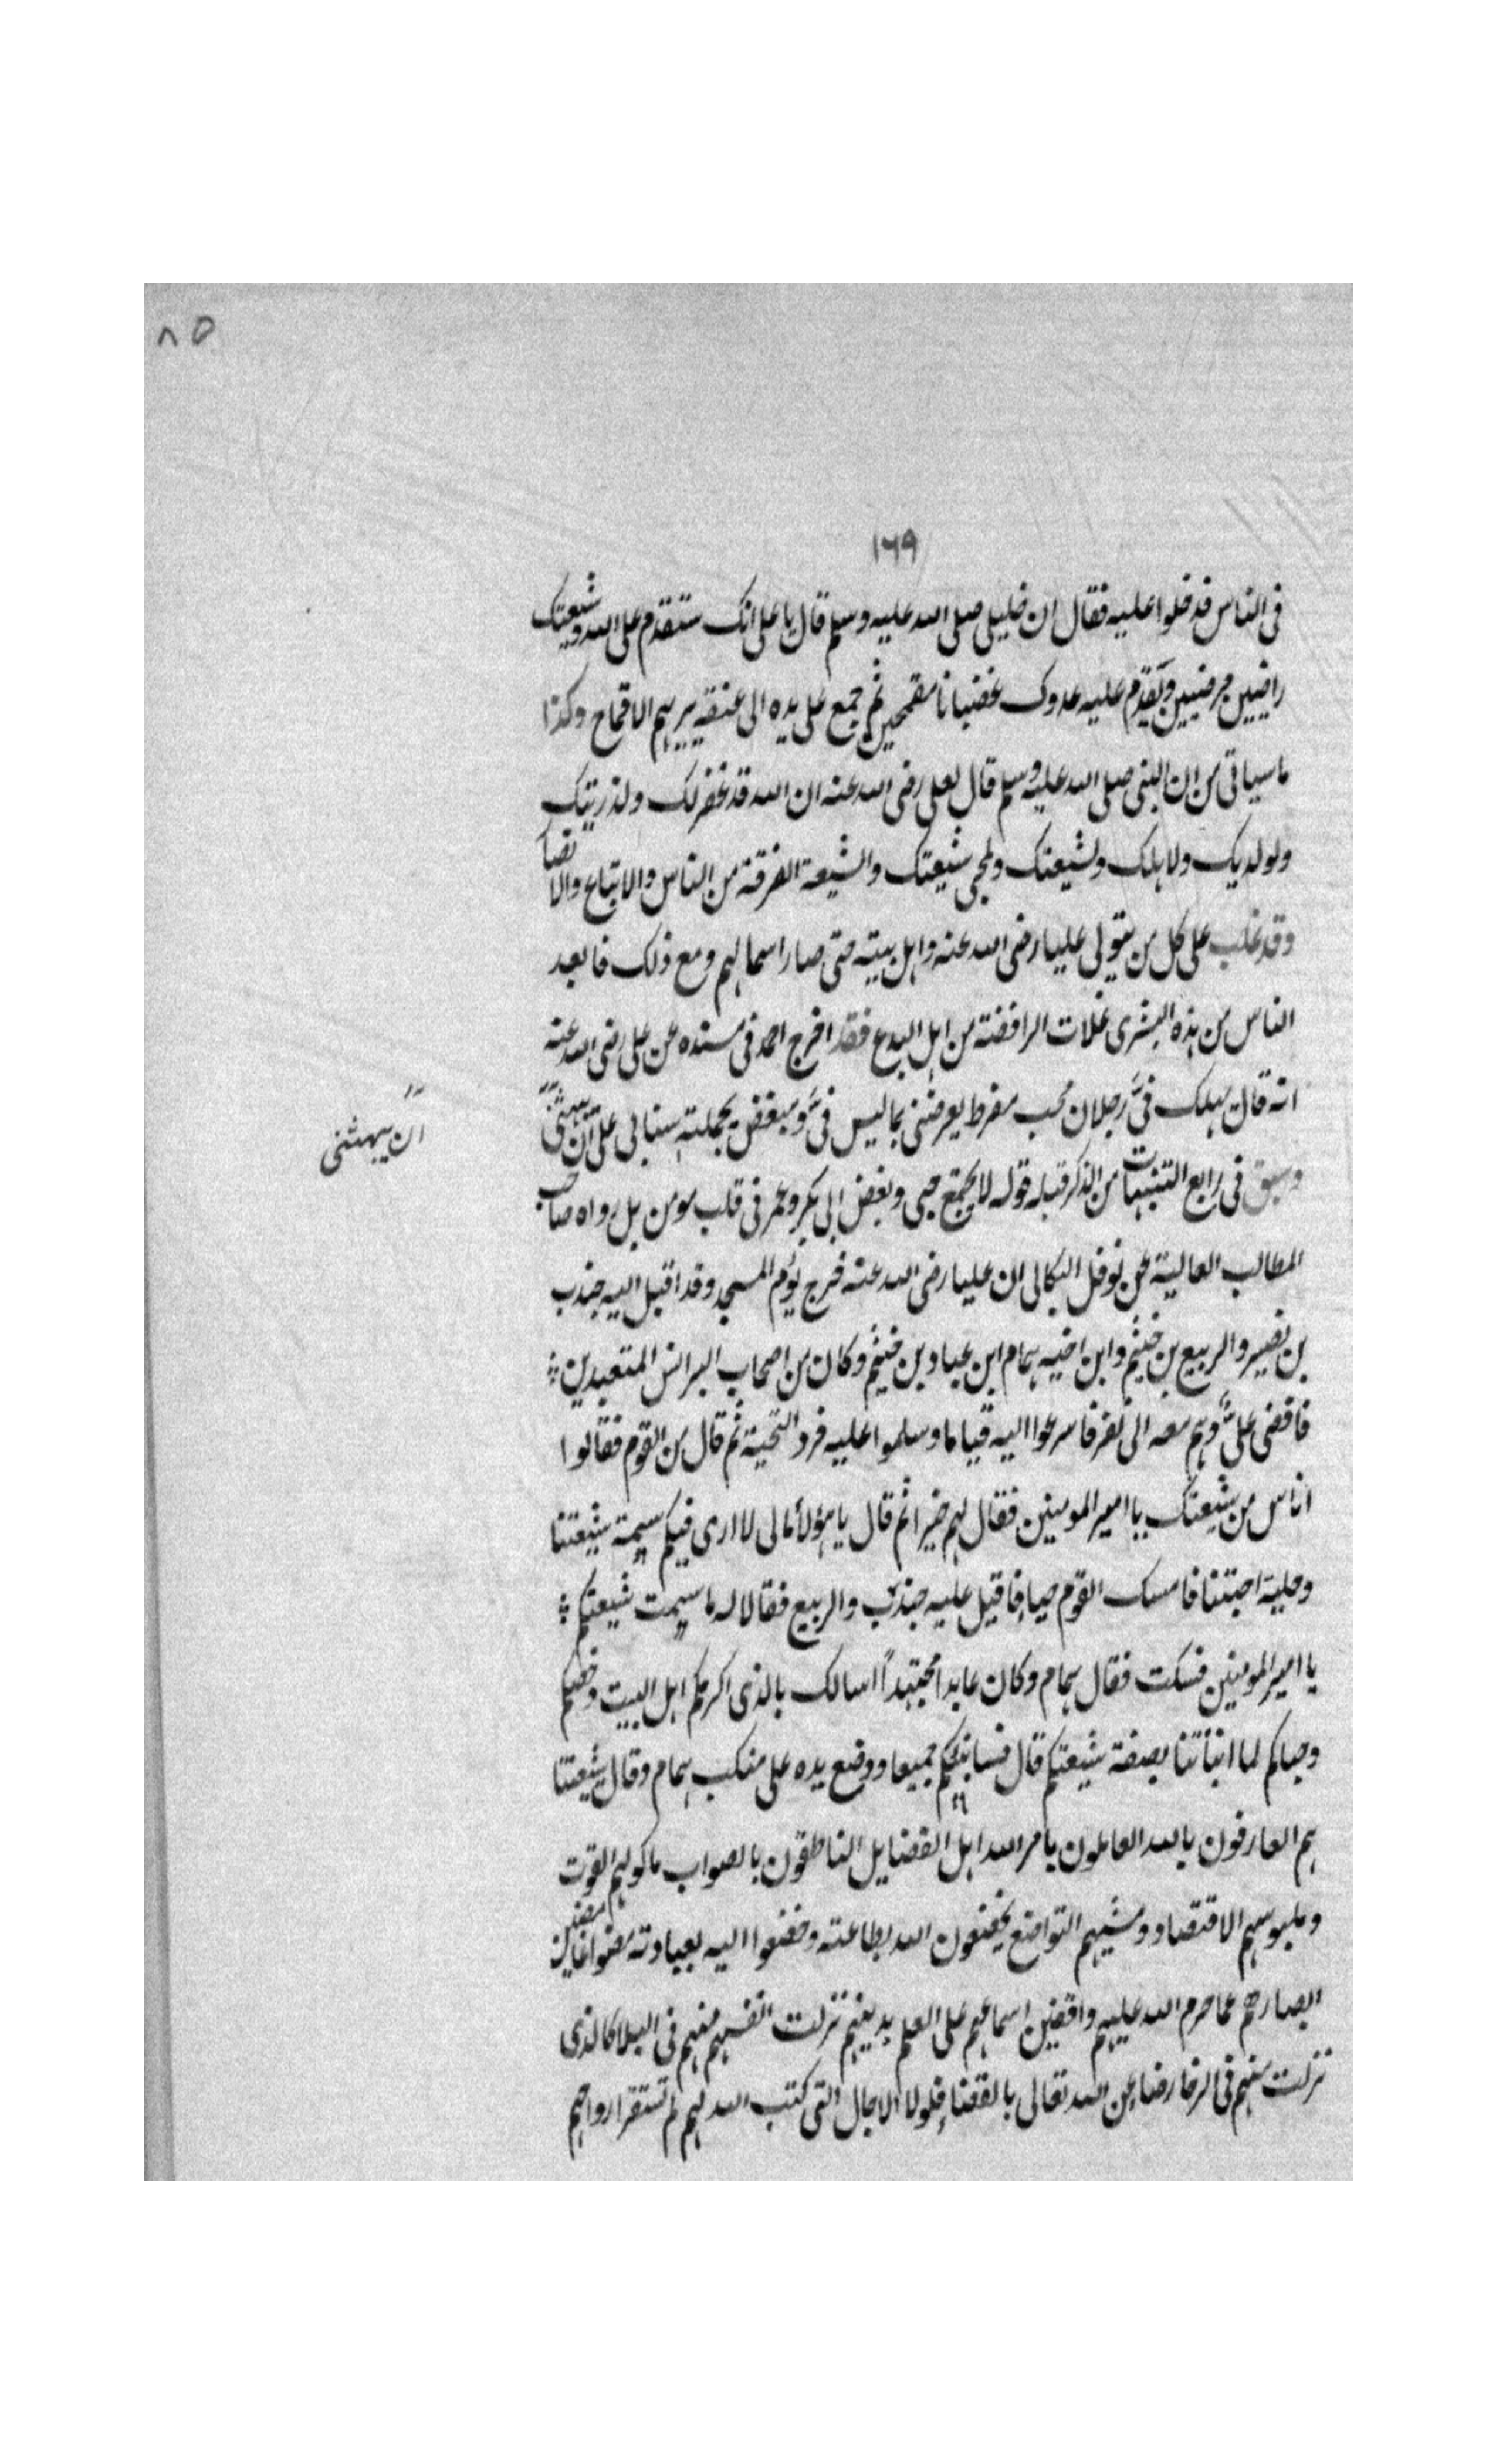 ٨٥
١٦٩
فى الناس فدخلوا عليه فقال ان خليلى صلى الله عليه وسلم قال يا على انك ستقدم على الله وشيعتك
راضيين مرضيين ويقدم عليه عدوك غضبانا مقمحين ثم جمع على يده الى عنقه يريهم الاقماح وكذا
ما سياتى من ان النبى صلى الله عليه وسلم قال لعلى رضى الله عنه ان الله قد غفر لك ولذريتك
ولولديك ولاهلك ولشيعتك ولمحبى شيعتك والشيعة الفرقة من الناس والاتباع والانصا
وقد غلب على كل من يتولى عليا رضى الله عنه واهل بيته حتى صار اسما لهم ومع ذلك فابعد
الناس من هذه البشرى غلات الرافضة من اهل البدع فقد اخرج احمد فى مسنده عن على رضى الله عنه
انه قال يهلك فىّ رجلان محب مفرط يعرضنى بما ليس فىّ ومبغض يحمله شنانى على ان يبهتنى
ان يبهتنى
وسبق فى رابع التنبيهات من الذكر قبله قوله لا يجتمع حبى وبغض ابى بكر وعمر فى قلب مومن بل رواه صاحب
المطالب العالية عن نوفل البكالى ان عليا رضى الله عنه خرج يؤم المسجد وقد اقبل اليه جندب
بن نصير والربيع بن خثيم وابن اخيه همام ابن عباد بن خثيم وكان من اصحاب البرانس المتعبدين
فافضى على وهم معه الى نفر فاسرعوا اليه قياما وسلموا عليه فرد التحية ثم قال من القوم فقالوا
اناس من شيعتك يا امير المومنين فقال لهم خيرا ثم قال يا هؤلاء ما لى لا ارى فيكم سيمة شيعتنا
وحلية احبتنا فامسك القوم حياء فاقبل عليه جندب والربيع فقالا له ما سيمت شيعتكم
يا امير المومنين فسكت فقال همام وكان عابدا مجتهداً اسالك بالذى اكرمكم اهل البيت وخصكم
وحباكم لما انبأتنا بصفة شيعتكم قال فسانبئكم جميعا ووضع يده على منكب همام وقال شيعتنا
هم العارفون بالله العاملون بامر الله اهل الفضايل الناطقون بالصواب ماكولهم القوت
وملبوسهم الاقتصاد ومشيهم التواضع يخضعون الله بطاعته وخضعوا اليه بعبادته مضوا غاضين
ابصارهم عما حرم الله عليهم واقفين اسماعهم على العلم بدينهم نزلت انفسهم منهم فى البلاء كالذى
نزلت منهم فى الرخا رضاء عن الله تعالى بالقضاء فلولا الاجال التى كتب الله لهم لم تستقر ارواحهم